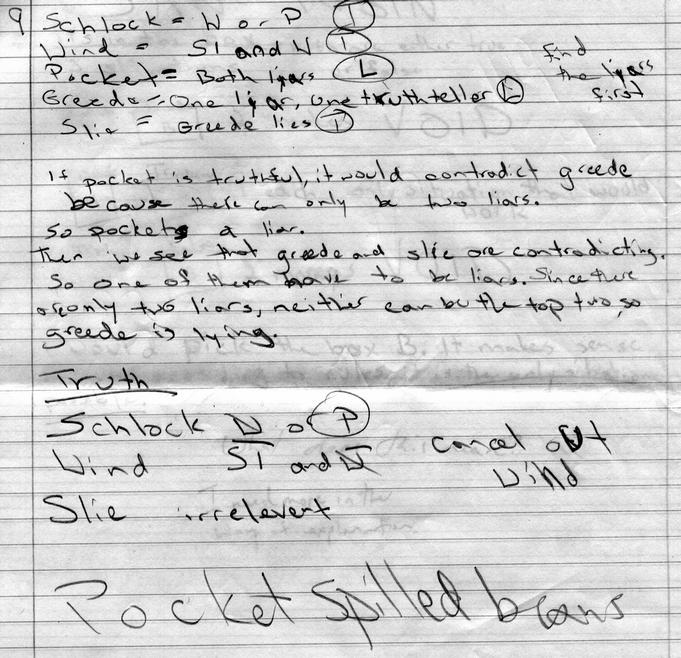 9 Schlock = W or P T
Wind = SI and W T
Pocket = Both liars L
Greede = One liar, one truthteller L
Slie = Greede lies T
find
the liars
first
If pocket is truthful, it would contradict greede
because there can only be two liars.
So pocket is a liar.
Then we see that greede and slie are contradicting.
So one of them have to be liars. Since there
are only two liars, neither can be the top two, so
greede is lying.
Truth
Schlock W or P
Wind SI and W
cancel out
wind
Slie irrelevent
Pocket spilled beans